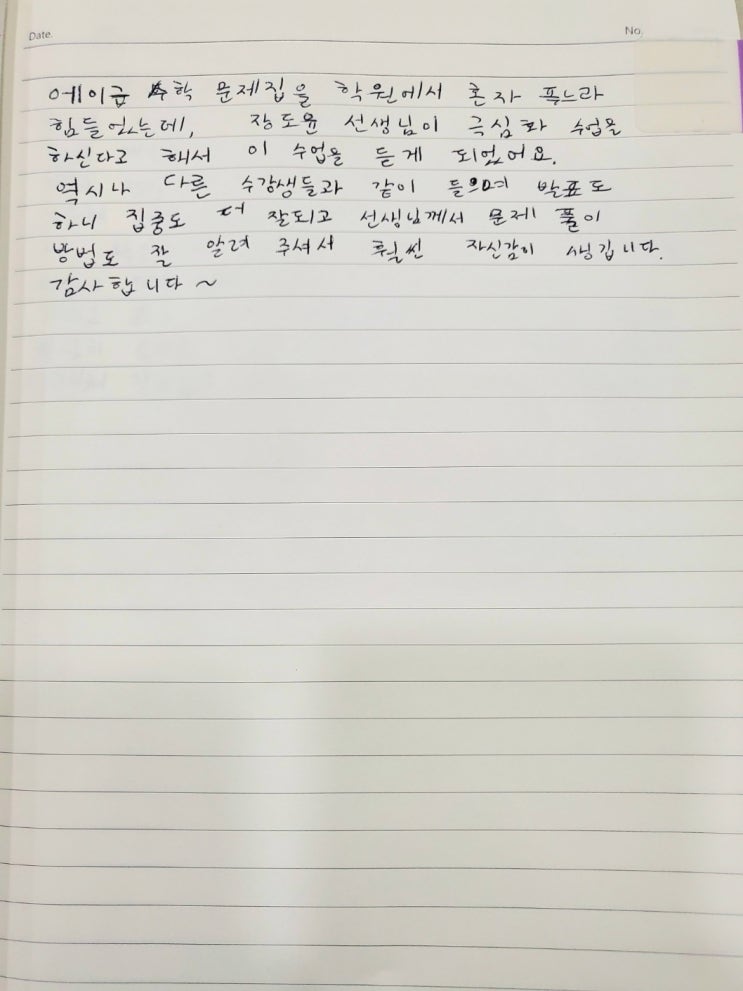 Date.
No.
에이급 수학 문제집을 학원에서 혼자 푸느라
힘들었는데, 장도윤 선생님이 극심화 수업을
하신다고 해서 이 수업을 듣게 되었어요.
역시나 다른 수강생들과 같이 들으며 발표도
하니 집중도 더 잘되고 선생님께서 문제 풀이
방법도 잘 알려 주셔서 훨씬 자신감이 생깁니다.
감사합니다 ~